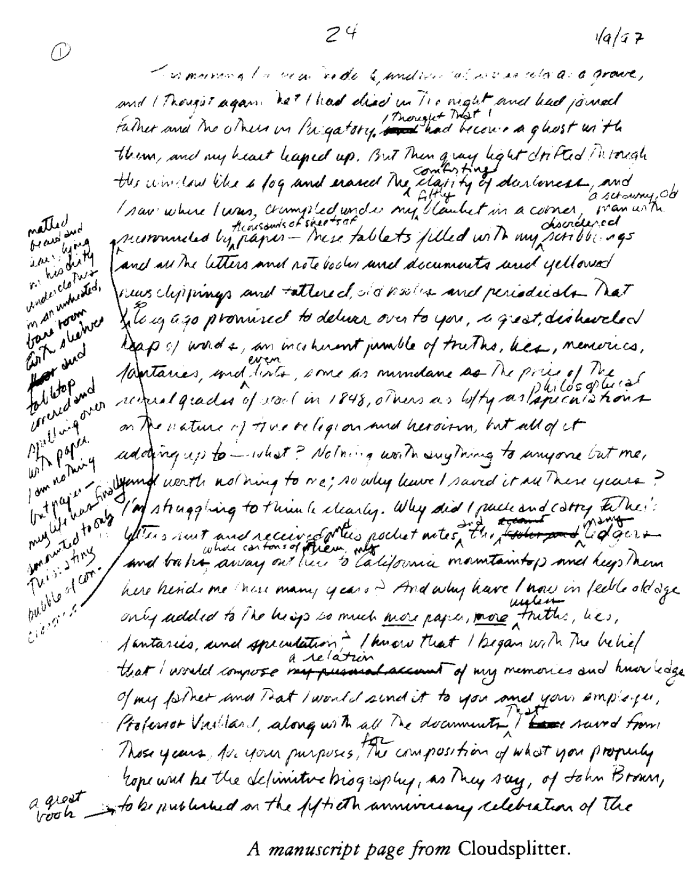 24
1/9/97
1
as a grave,
and I thought again that I had died in the night and had joined
I thought that I
Father and the others in Purgatory, had become a ghost with
them, and my heart leaped up. But then gray light drifted through
comforting
the window like a fog and erased the clarity of darkness, and
filthy
a scrawny, old
I saw where I was, crumpled under my blanket in a corner, man with
thousands of sheets of
disordered
surrounded by paper — these tablets filled with my scribblings
and all the letters and notebooks and documents and yellowed
news clippings and tattered, old books and periodicals that
so
long ago promised to deliver over to you, a great, disheveled
heap of words, an incoherent jumble of truths, lies, memories,
even
fantasies, and lists, some as mundane as the price of the
philosophical
several grades of wool in 1848, others as lofty as speculations
on the nature of true religion and heroism, but all of it
adding up to — what? Nothing worth anything to anyone but me,
and worth nothing to me; so why have I saved it all these years?
I'm struggling to think clearly. Why did I pack and carry Father's
and
and
many
letters sent and received, his pocket notes, the ledgers
whole cartons of them, my
and books, away out here to California mountaintop and keep them
here beside me these many years? And why have I now in feeble old age
useless
only added to the heap so much more paper, more truths, lies,
fantasies, and speculation? I know that I began with the belief
a relation
that I would compose my personal account of my memories and knowledge
of my father and that I would send it to you and your employer,
that
Professor Villard, along with all the documents I saved from
for
those years, for your purposes, the composition of what you properly
hope will be the definitive biography, as they say, of John Brown,
a great
book
to be published on the fiftieth anniversary celebration of the
matted
beard and
hair lying
in his dirty
underclothes
in an unheated,
bare room
with shelves
and
tabletop
covered and
spilling over
with paper.
I am nothing
but paper —
my life has finally
amounted to only
this: a tiny
bubble of con-
A manuscript page from Cloudsplitter.